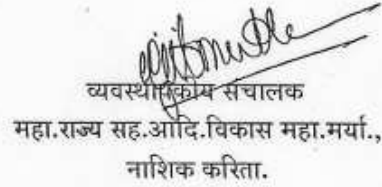 व्यवस्थापकीय संचालक
महा.राज्य सह.आदि.विकास महा.मर्या.,
नाशिक करिता.